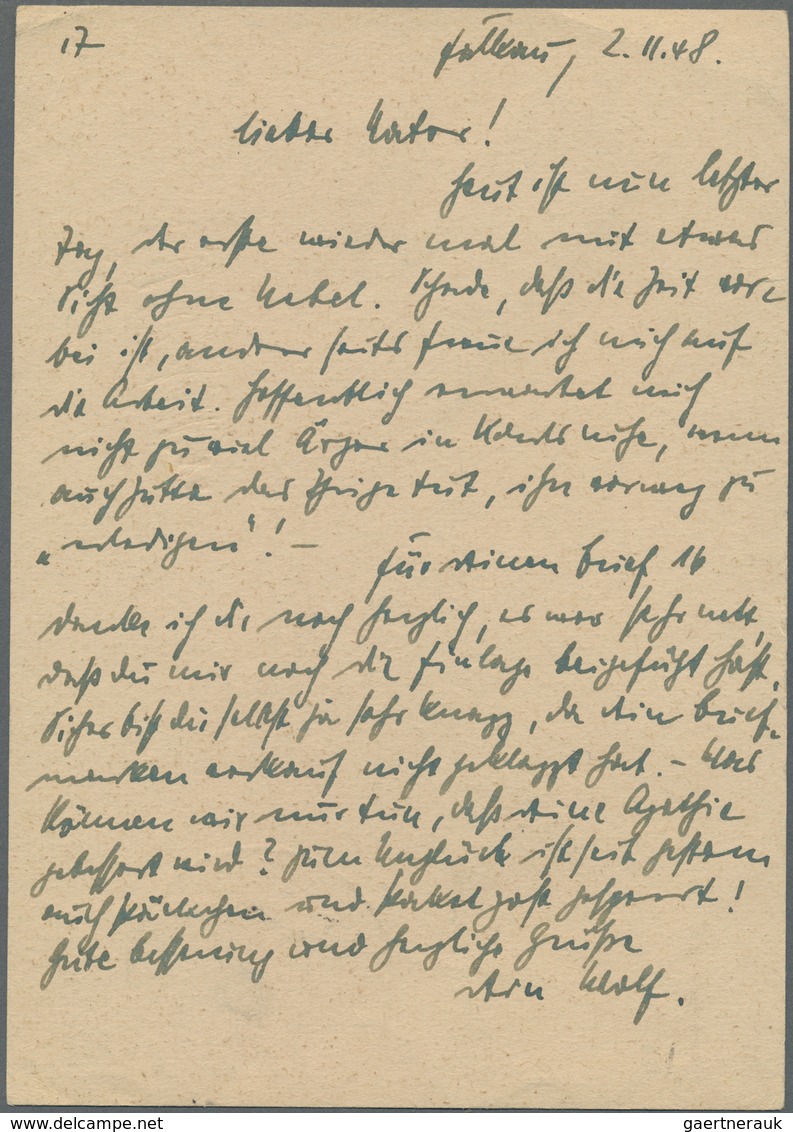 17 Falkau, 2.11.48.
Lieber Vater!
Heut ist nun letzter
Tag, der erste wieder mal mit etwas
Sicht ohne Nebel. Schade, daß die Zeit vor-
bei ist, andererseits freue ich mich auf
die Arbeit. Hoffentlich erwartet mich
nicht zu viel Ärger in Karlsruhe, wenn
auch Jutta das Ihrige tut, ihn vorweg zu
„erledigen"! –
Für deinen Brief 16
danke ich dir noch herzlich, es war sehr nett,
daß du mir noch die Einlage beigefügt hast.
Sicher bist du selbst ja sehr knapp, da dein Brief-
markenverkauf nicht geklappt hat. – Was
können wir nur tun, daß deine Apathie
gebessert wird? Zum Unglück ist seit gestern
auch Päckchen und Paketpost gesperrt!
Gute Besserung und herzliche Grüße
dein Wolf.
gaertnerauk